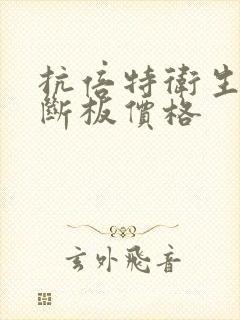 抗倍特衛生
斷板價格
玄外飛音